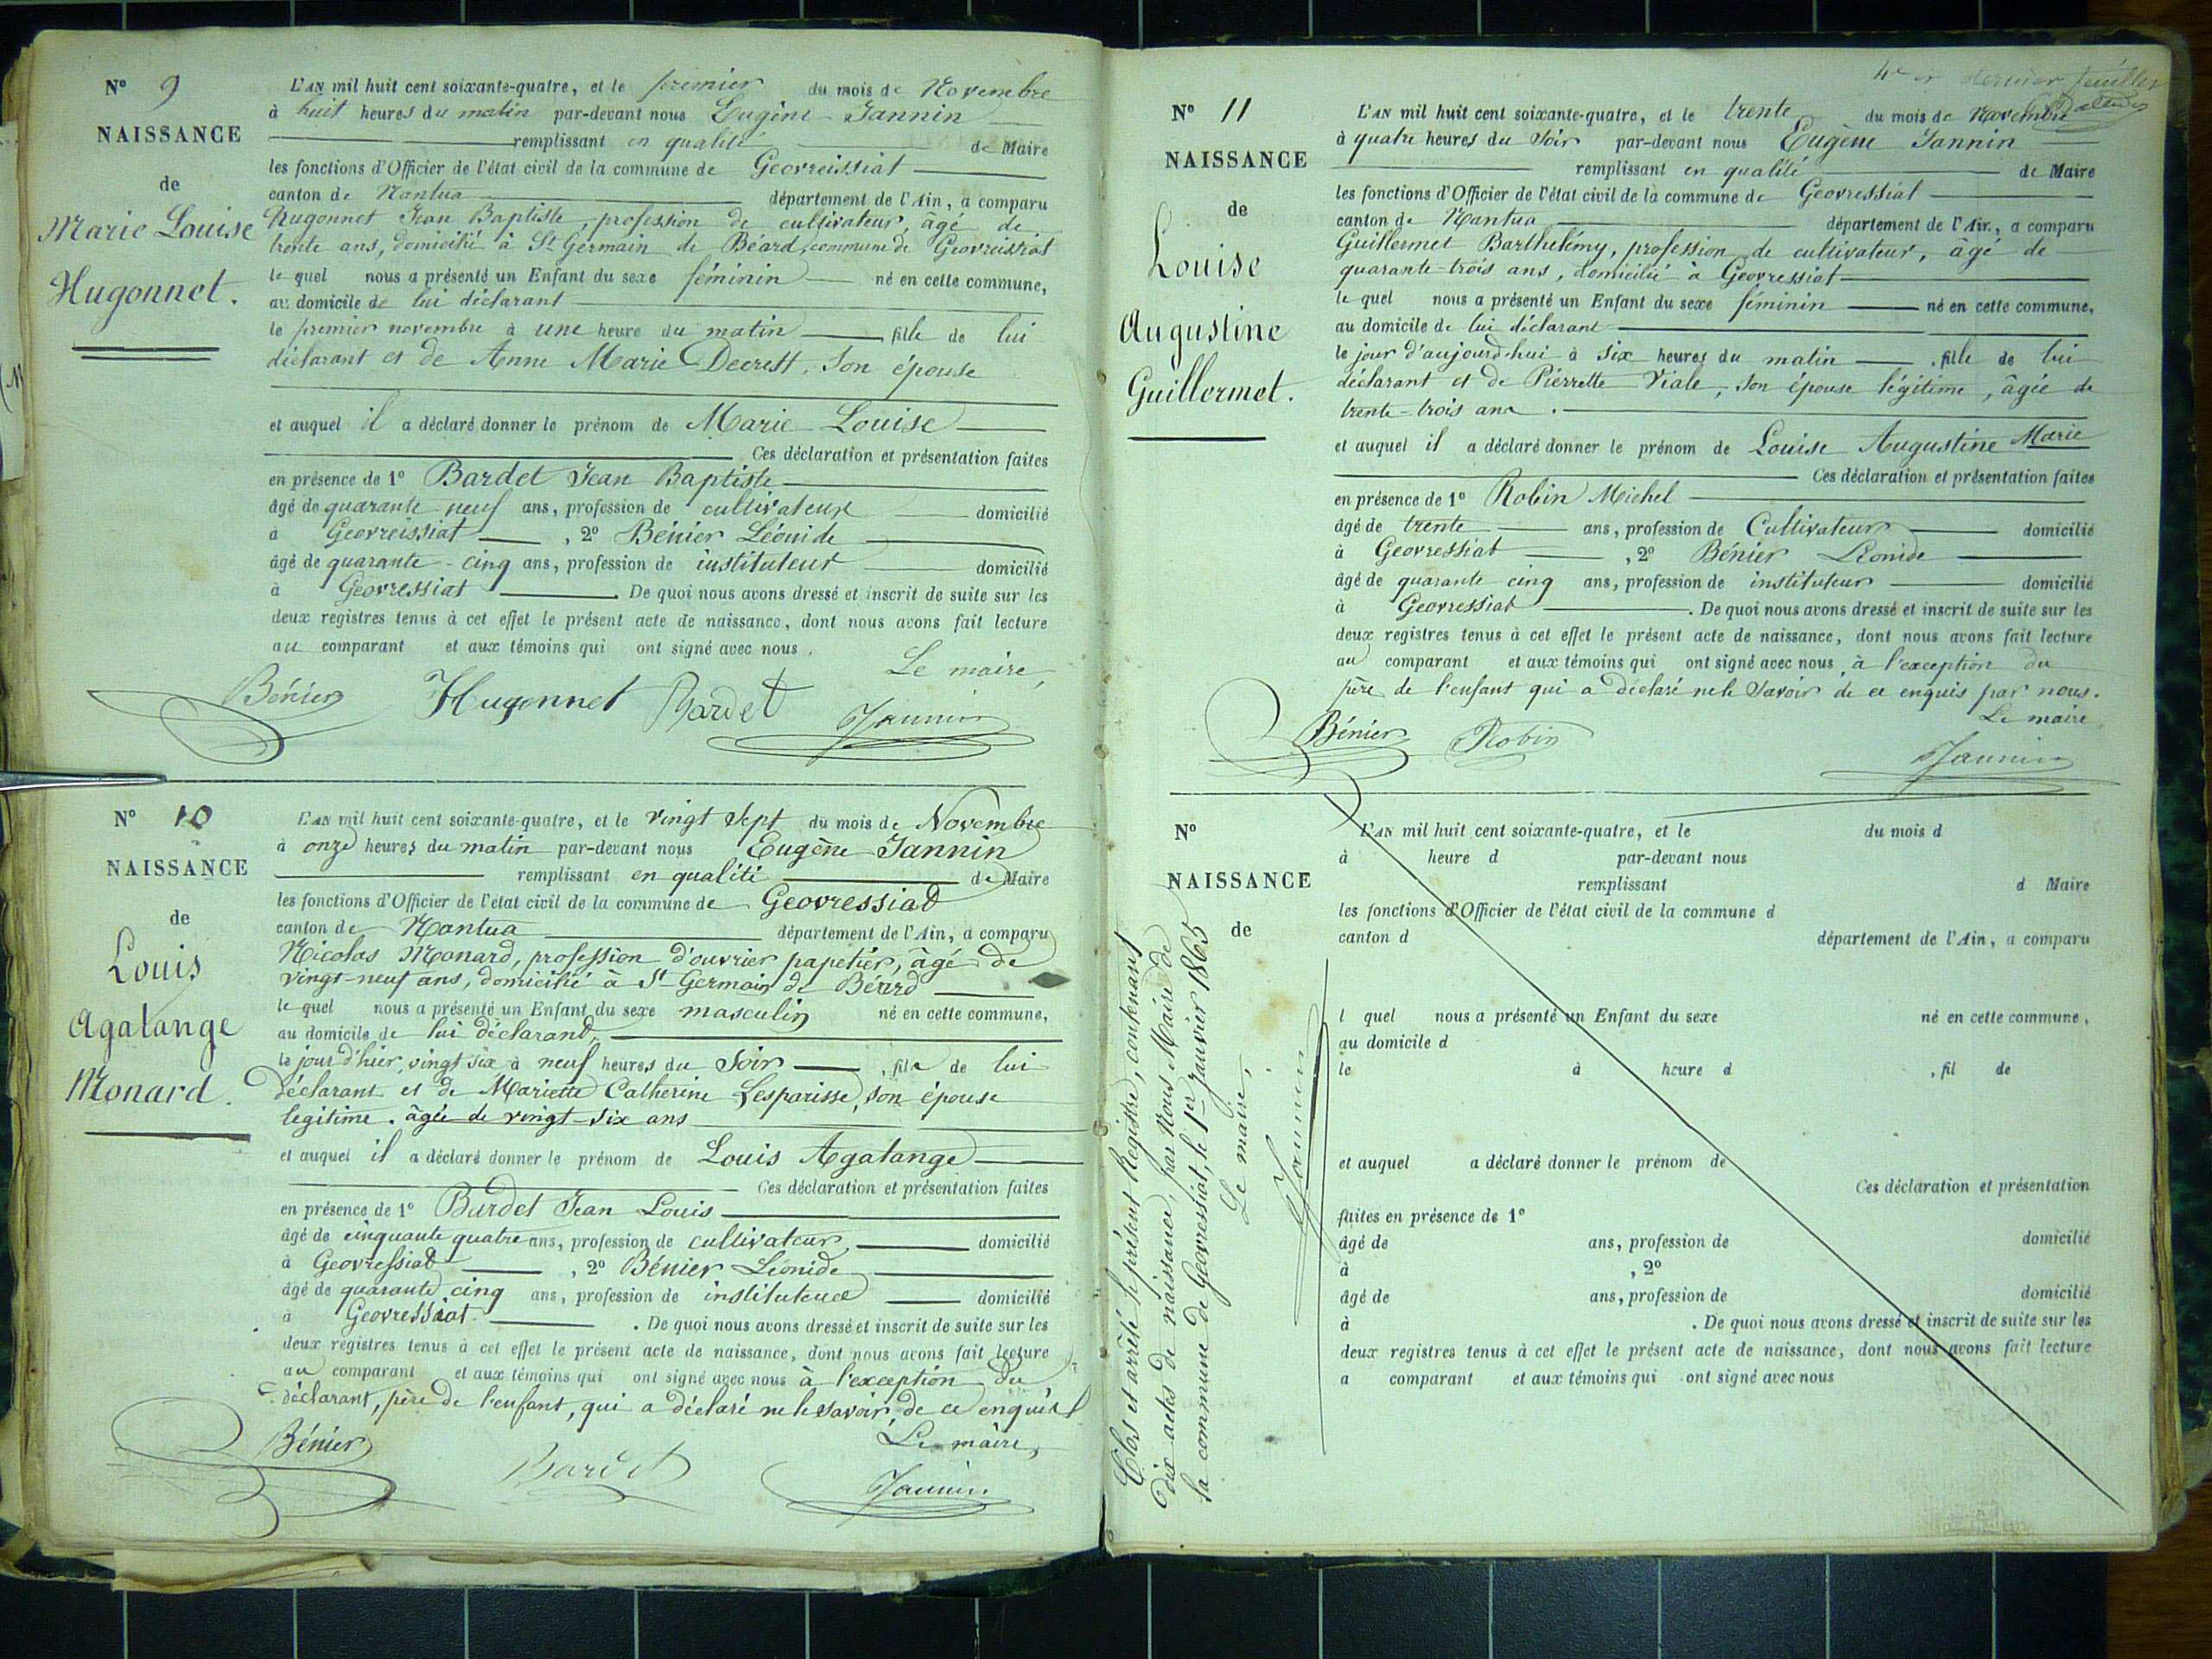 N° 9
NAISSANCE
de
Marie Louise
Hugonnet.
L'AN mil huit cent soixante-quatre, et le premier du mois de Novembre
à huit heures du matin par-devant nous Eugène Jannin
remplissant en qualité de Maire
les fonctions d'Officier de l'état civil de la commune de Geovreissiat
canton de Nantua département de l'Ain, a comparu
Hugonnet Jean Baptiste, profession de cultivateur, âgé de
trente ans, domicilié à St Germain de Béard, commune de Geovreissiat
le quel nous a présenté un Enfant du sexe féminin né en cette commune,
au domicile de lui déclarant
le premier novembre à une heure du matin, fille de lui
déclarant et de Anne Marie Decrett, son épouse
et auquel il a déclaré donner le prénom de Marie Louise
Ces déclaration et présentation faites
en présence de 1° Bardet Jean Baptiste
âgé de quarante neuf ans, profession de cultivateur domicilié
à Geovreissiat, 2° Bénier Léonide
âgé de quarante-cinq ans, profession de instituteur domicilié
à Geovressiat. De quoi nous avons dressé et inscrit de suite sur les
deux registres tenus à cet effet le présent acte de naissance, dont nous avons fait lecture
au comparant et aux témoins qui ont signé avec nous.
Le maire,
Bénier Hugonnet Bardet Jannin
N° 10
NAISSANCE
de
Louis
Agatange
Monard.
L'AN mil huit cent soixante-quatre, et le vingt sept du mois de Novembre
à onze heures du matin par-devant nous Eugène Jannin
remplissant en qualité de Maire
les fonctions d'Officier de l'état civil de la commune de Geovressiat
canton de Nantua département de l'Ain, a comparu
Nicolas Monard, profession d'ouvrier papetier, âgé de
vingt-neuf ans, domicilié à St Germain de Béard
le quel nous a présenté un Enfant du sexe masculin né en cette commune,
au domicile de lui déclarant,
le jour d'hier, vingt six à neuf heures du soir, fils de lui
déclarant et de Mariette Catherine Lesparisse, son épouse
légitime. âgée de vingt-six ans
et auquel il a déclaré donner le prénom de Louis Agatange
Ces déclaration et présentation faites
en présence de 1° Burdet Jean Louis
âgé de cinquante quatre ans, profession de cultivateur domicilié
à Geovressiat, 2° Bénier Léonide
âgé de quarante cinq ans, profession de instituteur domicilié
à Geovressiat. De quoi nous avons dressé et inscrit de suite sur les
deux registres tenus à cet effet le présent acte de naissance, dont nous avons fait lecture
au comparant et aux témoins qui ont signé avec nous à l'exception du
déclarant, père de l'enfant, qui a déclaré ne le savoir, de ce enquis
Le maire,
Bénier Bardet Jannin
4e et dernier feuillet
N° 11
NAISSANCE
de
Louise
Augustine
Guillermet.
L'AN mil huit cent soixante-quatre, et le trente du mois de Novembre
à quatre heures du soir par-devant nous Eugène Jannin
remplissant en qualité de Maire
les fonctions d'Officier de l'état civil de la commune de Geovressiat
canton de Nantua département de l'Ain, a comparu
Guillermet Barthélémy, profession de cultivateur, âgé de
quarante-trois ans, domicilié à Geovressiat
le quel nous a présenté un Enfant du sexe féminin né en cette commune,
au domicile de lui déclarant
le jour d'aujourd'hui à six heures du matin, fille de lui
déclarant et de Pierrette Viale, son épouse légitime, âgée de
trente-trois ans.
et auquel il a déclaré donner le prénom de Louise Augustine Marie
Ces déclaration et présentation faites
en présence de 1° Robin Michel
âgé de trente ans, profession de Cultivateur domicilié
à Geovressiat, 2° Bénier Léonide
âgé de quarante cinq ans, profession de instituteur domicilié
à Geovressiat. De quoi nous avons dressé et inscrit de suite sur les
deux registres tenus à cet effet le présent acte de naissance, dont nous avons fait lecture
au comparant et aux témoins qui ont signé avec nous, à l'exception du
père de l'enfant qui a déclaré ne le savoir de ce enquis par nous.
Le maire
Bénier Robin Jannin
N°
NAISSANCE
de
L'AN mil huit cent soixante-quatre, et le du mois d
à heure d par-devant nous
remplissant d Maire
les fonctions d'Officier de l'état civil de la commune d
canton d département de l'Ain, a comparu
l quel nous a présenté un Enfant du sexe né en cette commune,
au domicile d
le à heure d, fil de
et auquel a déclaré donner le prénom de
Ces déclaration et présentation
faites en présence de 1°
âgé de ans, profession de domicilié
à, 2°
âgé de ans, profession de domicilié
à. De quoi nous avons dressé et inscrit de suite sur les
deux registres tenus à cet effet le présent acte de naissance, dont nous avons fait lecture
a comparant et aux témoins qui ont signé avec nous
Clos et arrêté le présent Registre, contenant
dix actes de naissance, par Nous Maire de
la commune de Geovressiat, le 1er Janvier 1865
Le maire,
Jannin